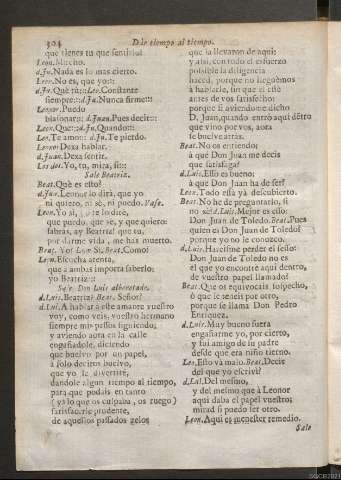 304
Dàr tiempo al tiempo.
que tienes tu que sentirlo?
Leon. Mucho.
d.Ju. Nada es lo mas cierto.
Leon. No es, que yo:::
d.Ju. Què tù::: Leo. Constante
siempre::: d.Ju. Nunca firme:::
Leonor. Puedo
blasonar::: d.Juan. Pues decir:::
Leon. Que::: d.Ju. Quando:::
Leo. Te amo: d.Ju. Te pierdo.
Leonor. Dexa hablar.
d.Juan. Dexa sentir.
Los dos. Yo, tu, mira, si:::
Sale Beatriz.
Beat. Què es esto?
d.Jua. Leonor lo dirà, que yo
ni quiero, ni sè, ni puedo. Vase.
Leon. Yo sì, te lo dirè,
que puedo, que sè, y que quiero:
sabràs, ay Beatriz! que tu,
por darme vida, me has muerto.
Beat. Yo? Leon. Si. Beat. Como?
Leon. Escucha atenta,
que à ambas importa saberlo:
yo Beatriz:::
Sale Don Luis alborotado.
d.Lui. Beatriz? Beat. Señor?
d.Lui. A hablar à esse amante vuestro
voy, como veis, vuestro hermano
siempre mis passos siguiendo;
y aviendo aora en la calle
engañadole, diciendo
que buelvo por un papel,
à solo deciros buelvo,
que yo le divertirè,
dandole algun tiempo al tiempo,
para que podais en tanto
(ya lo que os culpaba, os ruego)
satisfacerle prudente,
de aquellos passados zelos
que la llevaron de aqui;
y assi, con todo el esfuerzo
possible la diligencia
haced, porque no lleguèmos
à hablarle, sin que el estè
antes de vos satisfecho:
porque si aviendome dicho
D. Juan, quando entrò aqui dètro
que vino por vos, aora
se buelve atràs.
Beat. No os entiendo;
à què Don Juan me decis
que satisfaga?
d.Luis. Esso es bueno;
à què Don Juan ha de ser?
Leon. Todo està yà descubierto.
Beat. No he de preguntarlo, si
no sè? d.Luis. Mejor es esso:
Don Juan de Toledo. Beat. Pues
quien es Don Juan de Toledo?
porque yo no le conozco.
d.Luis. Hareisme perder el sesso:
Don Juan de Toledo no es
el que yo encontrè aqui dentro,
de vuestro papel llamado?
Beat. Que os equivocais sospecho,
ò que le teneis por otro,
porque se llama Don Pedro
Enriquez.
d.Luis. Muy bueno fuera
engañarme yo, por cierto,
y fui amigo de su padre
desde que era niño tierno.
Leo. Esto và malo. Beat. Decis
del que yo escrivi?
d.Lui. Del mesmo,
y del mesmo que à Leonor
aqui daba el papel vuestro;
mirad si puedo ser otro.
Leon. Aqui es menester remedio.
Sale